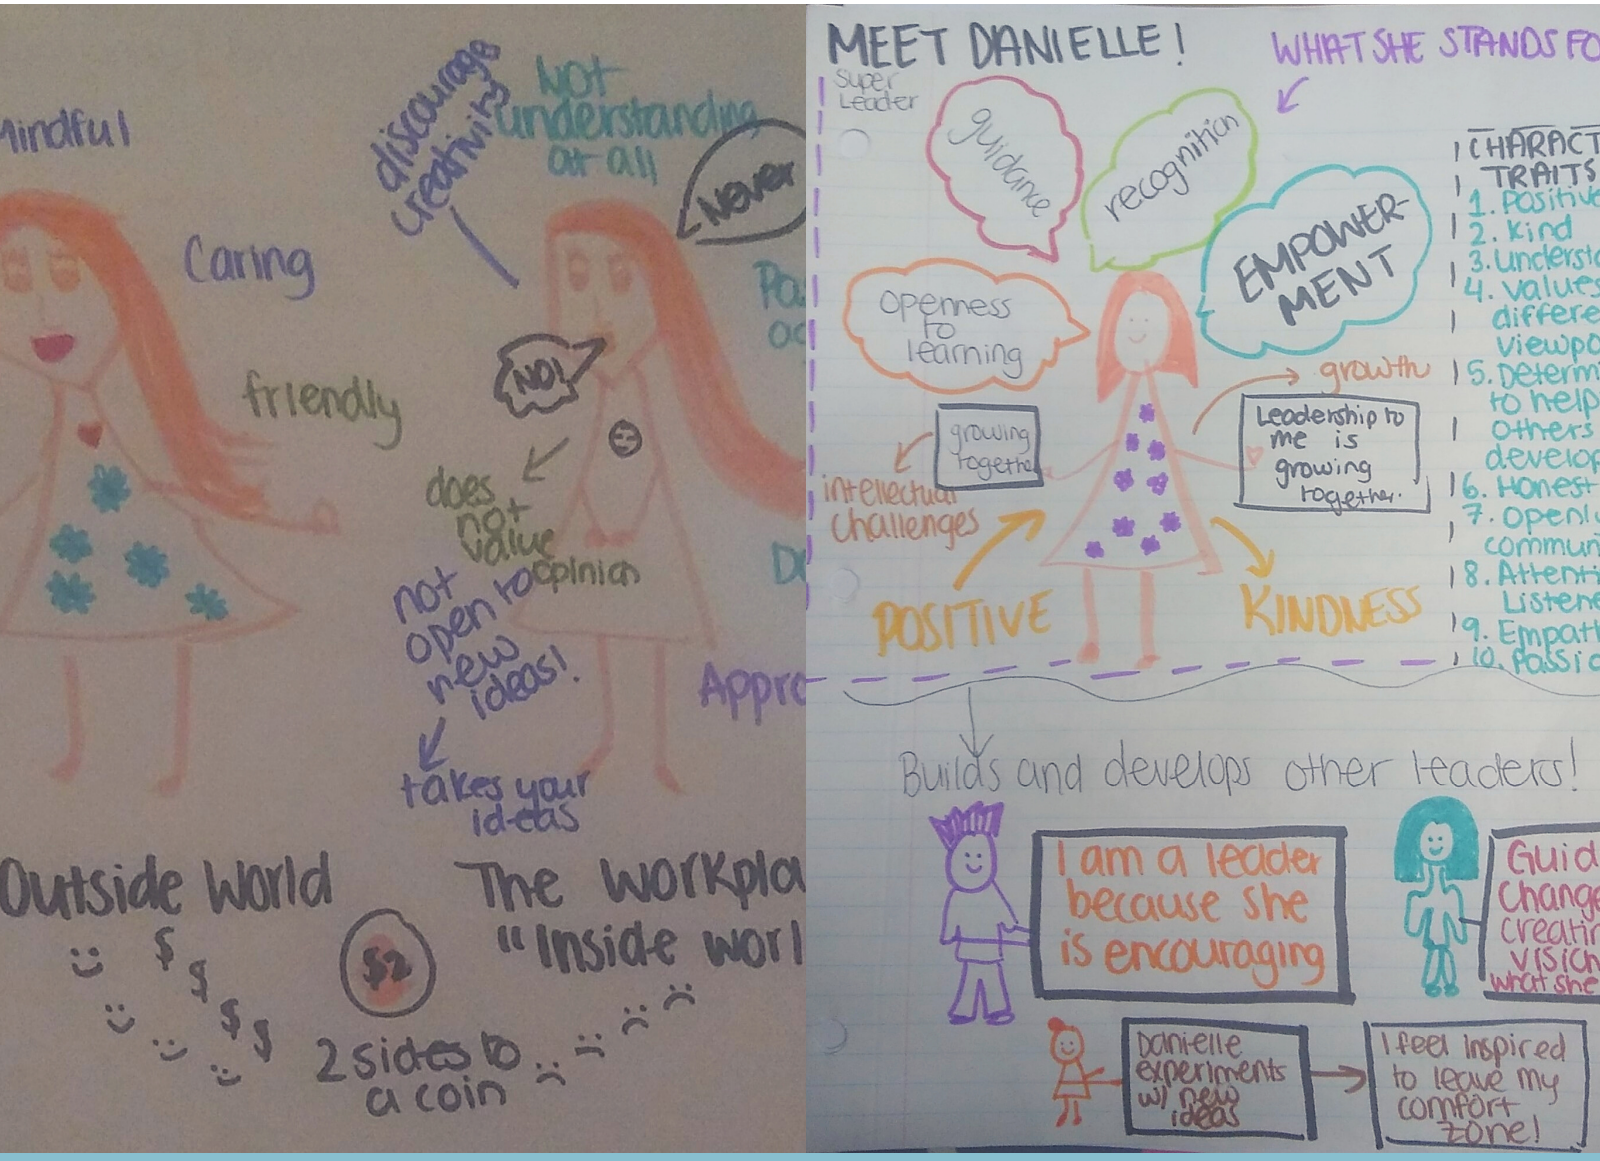 Mindful
Caring
friendly
discourage
creativity
Not
understanding
at all
Never
NO!
does
not
value
opinion
not
open to
new
ideas!
takes your
ideas
Appro
Outside World
$ $ $ $
$2
2 sides to
a coin
The Workpla
"Inside worl
MEET DANIELLE!
Super
Leader
WHAT SHE STANDS FO
guidance
recognition
EMPOWER-
MENT
Openness
to
learning
growing
together
intellectual
challenges
growth
Leadership to
me is
growing
together.
POSITIVE
KINDNESS
CHARACT
TRAITS
1. Positive
2. Kind
3. Understa
4. Values
differe
viewpo
5. Determi
to help
others
develop
6. Honest
7. Openly
commun
8. Attenti
Listene
9. Empath
10. Passio
Builds and develops other leaders!
I am a leader
because she
is encouraging
Guid
Change
creatin
vision
what she
Danielle
experiments
w/ new
ideas
I feel inspired
to leave my
comfort
zone!